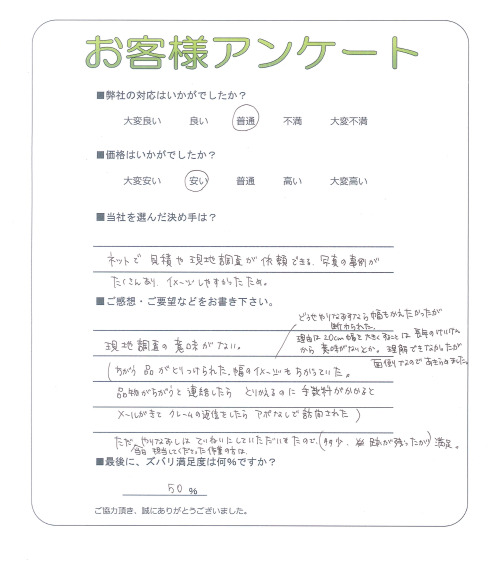 お客様アンケート
■弊社の対応はいかがでしたか？
大変良い 良い 普通 不満 大変不満
■価格はいかがでしたか？
大変安い 安い 普通 高い 大変高い
■当社を選んだ決め手は？
ネットで 見積や 現地調査が 依頼できる、写真の事例が
たくさんあり、イメージしやすかったため。
■ご感想・ご要望などをお書き下さい。
どうせやりなおすなら幅もかえたかったが
断わられた。
理由は20cm幅を大きくすることは 長年のけいけん
から 意味がないとか。理解できなかったが
面倒なのであきらめました。
現地調査の意味がない。
(ちがう品がとりつけられた、幅のイメージもちがっていた。
品物がちがうと連絡したら とりかえるのに 手数料がかかると
メールがきて クレームの返信をしたら アポなしで訪問された)
ただ、やりなおしは ていねいにしていただいたので、(多少、跡が残ったが) 満足。
当日 担当してくださった作業の方は、
■最後に、ズバリ満足度は何％ですか？
50 %
ご協力頂き、誠にありがとうございました。